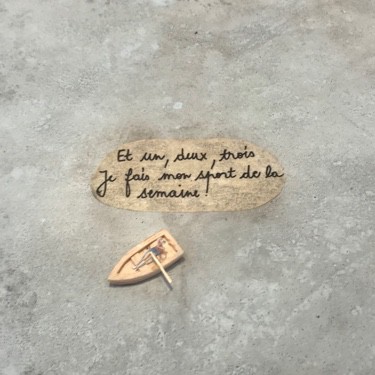 Et un, deux, trois
Je fais mon sport de la
semaine !